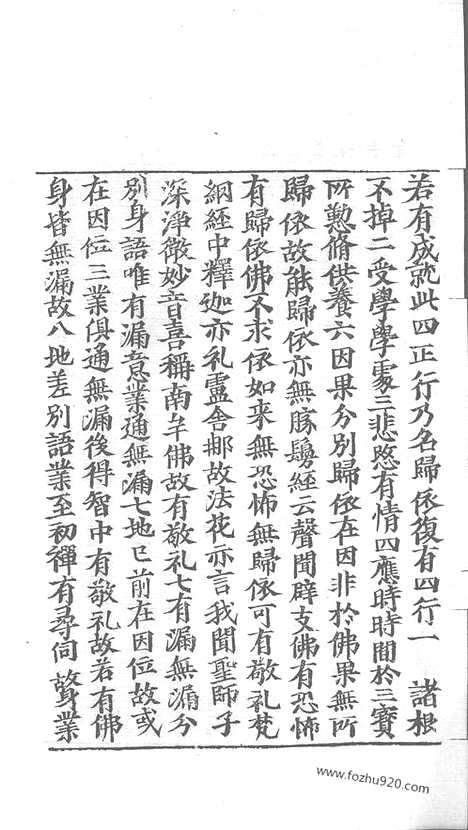 若有成就此四正行乃名歸依復有四行一　諸根
不掉二受學學處三悲愍有情四應時時間於三寶
所懃脩供養六因果分別歸依在因非於佛果無所
歸依故能歸依亦無勝鬘經云聲聞辟支佛有恐怖
有歸依佛不求依如来無恐怖無歸依可有敬礼梵
網經中釋迦亦礼盧舍那故法花亦言我聞聖師子
深淨微妙音喜稱南无佛故有敬礼七有漏無漏分
別身語唯有漏意業通無漏七地已前在因位故或
在因位三業俱通無漏後得智中有敬礼故若有佛
身皆無漏故八地差別語業至初禪有尋伺故身業
www.fozhu920.com